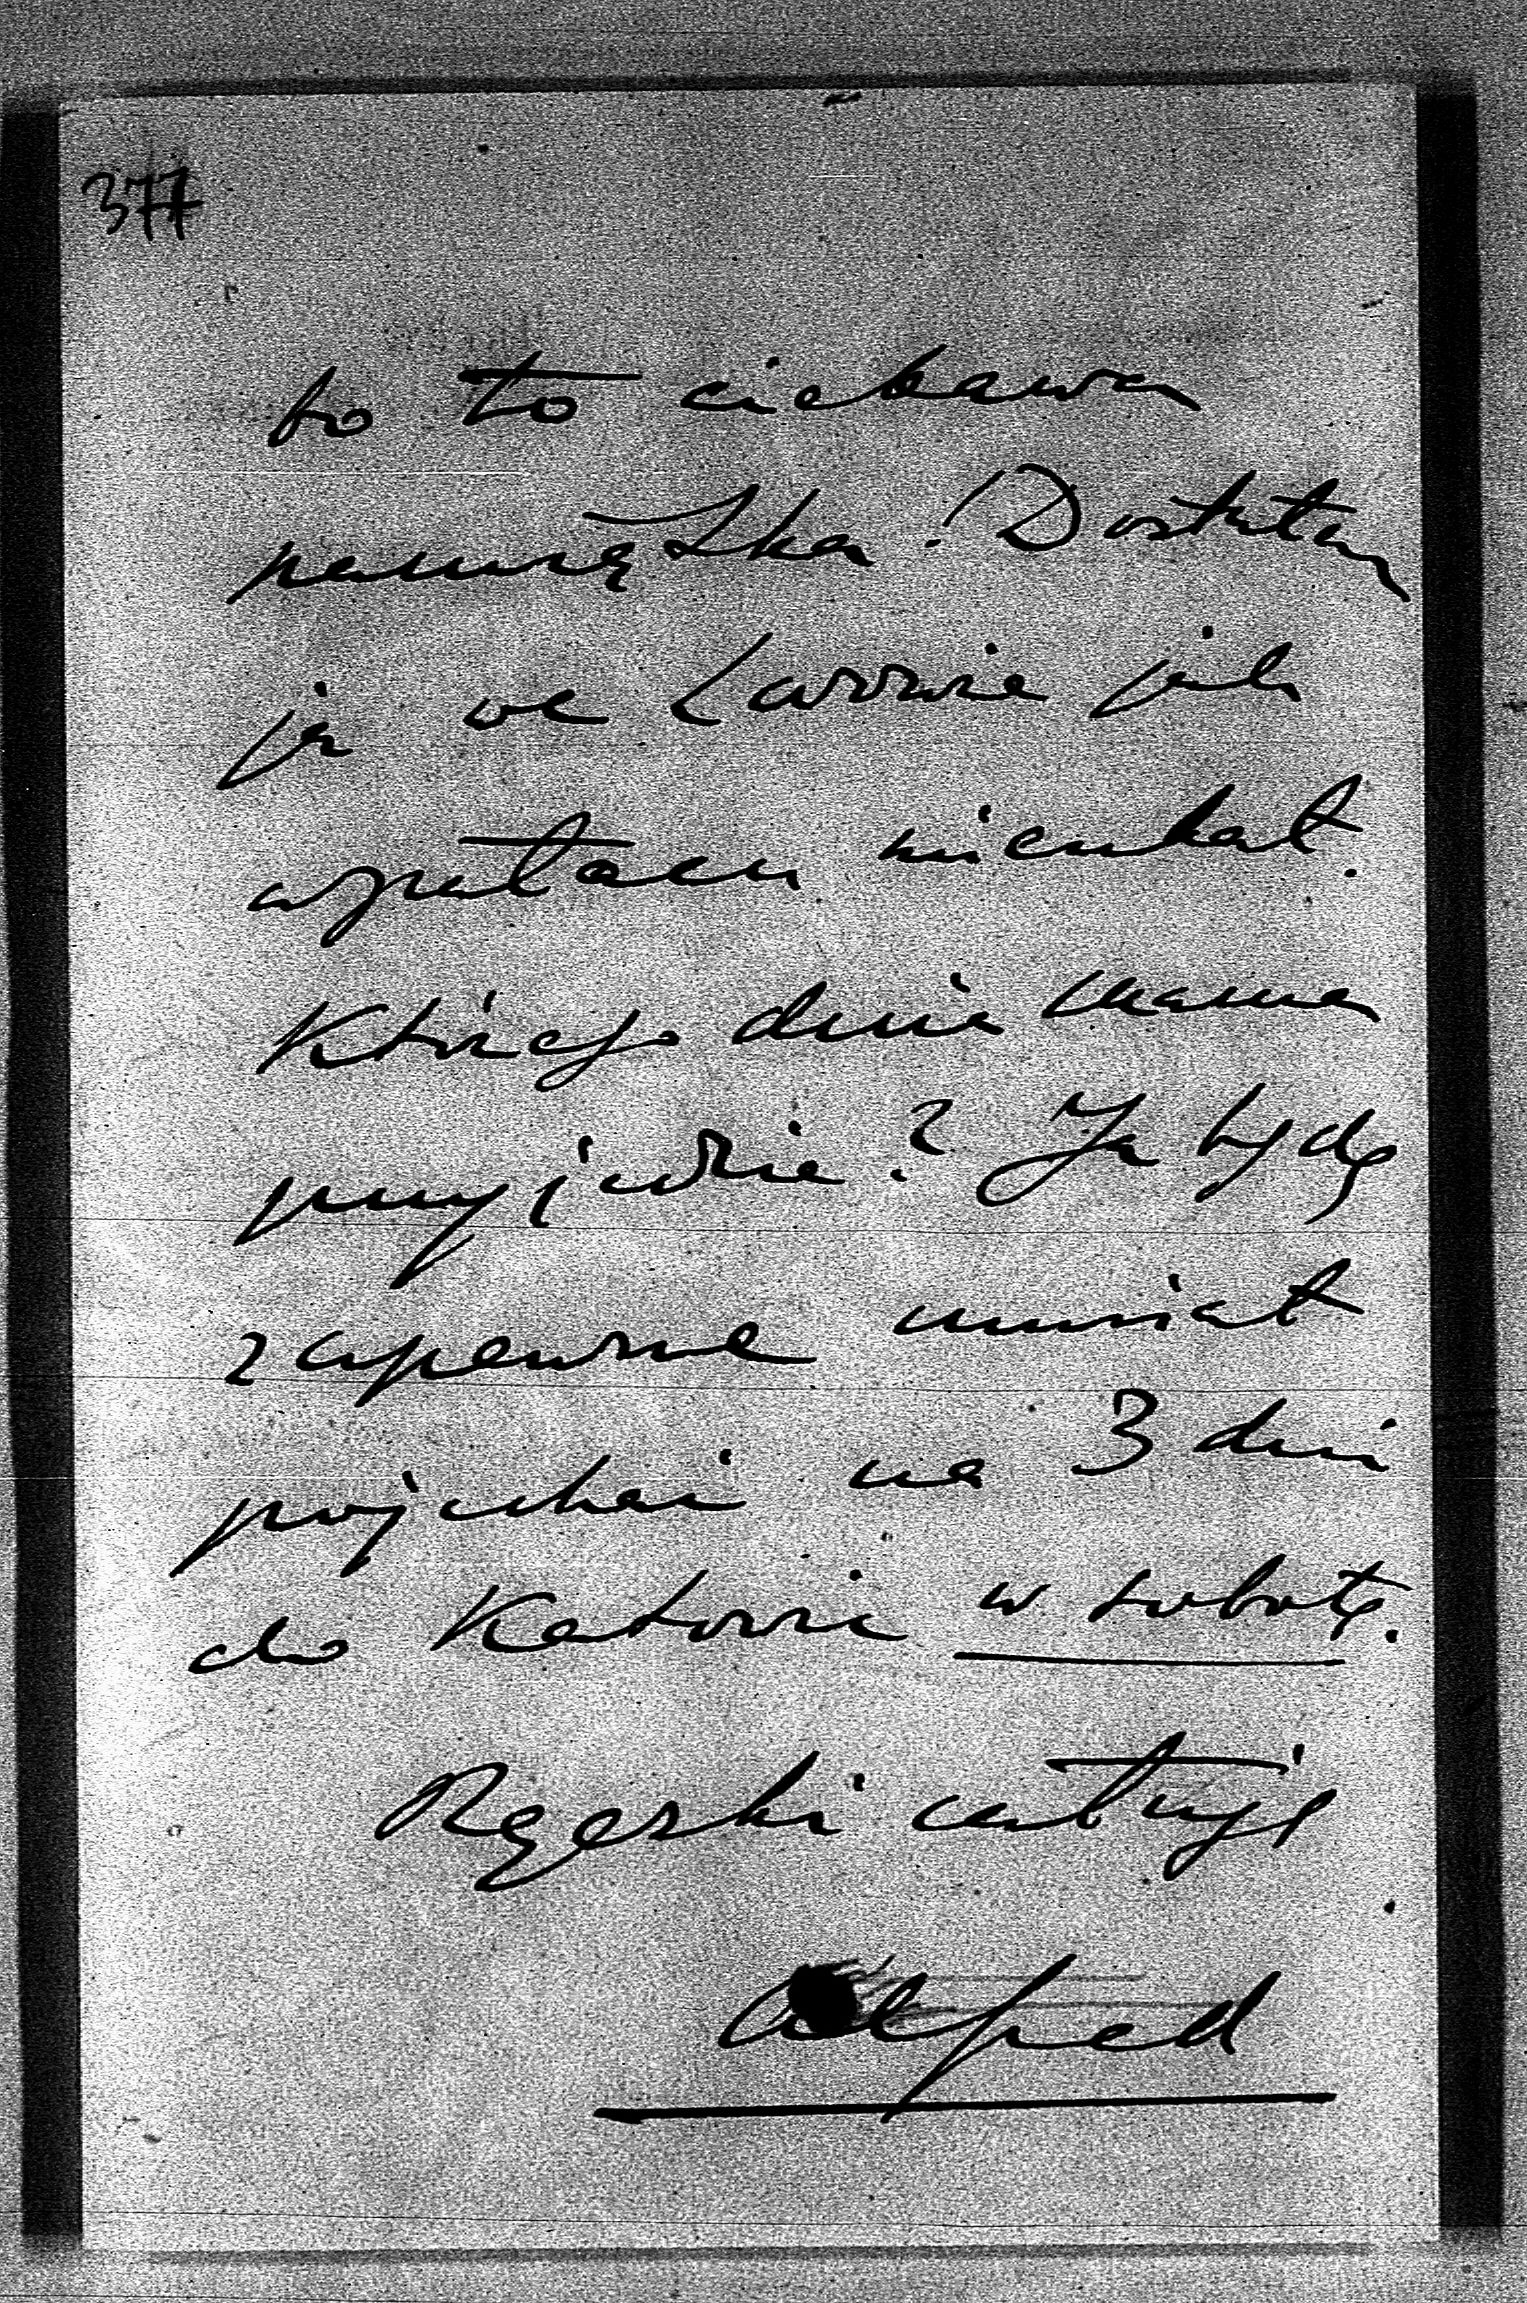 377
bo to ciekawa
pamiątka. Dostałam
ja we Lwowie jak
szpitalu mieszkał.
Którego dnia mama
przyjedzie? Ja będę
zapewne musiał
pojechać na 3 dni
do Katowic w sobotę.
Rączki całuję
Alfred